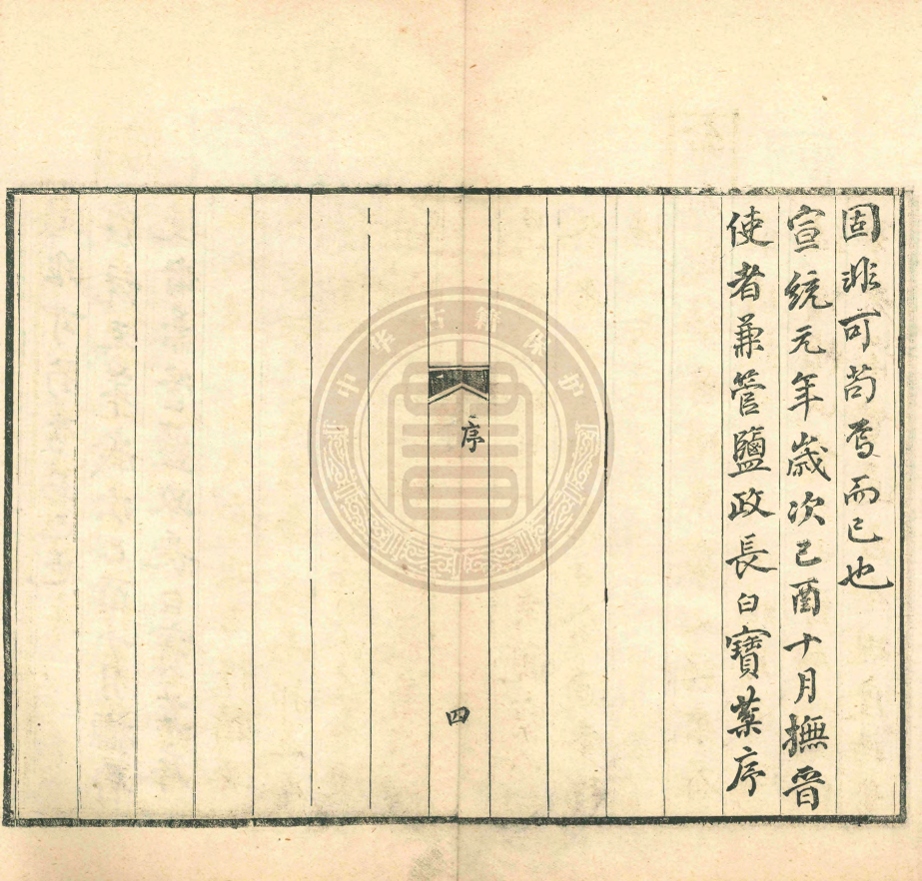 固非可苟焉而已也
宣統元年歲次己酉十月撫晉
使者兼管鹽政長白寶棻序
序
四
中华古籍保护